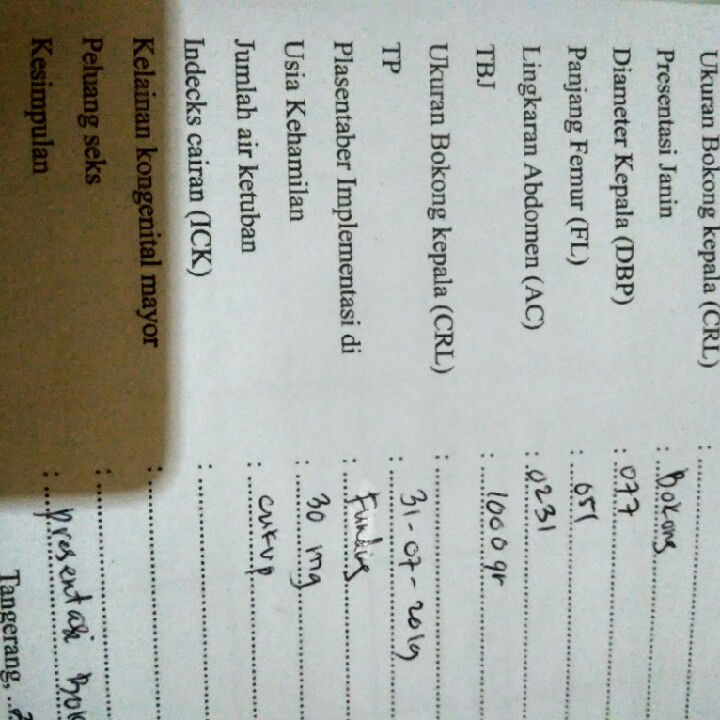 Ukuran Bokong kepala (CRL) :
Presentasi Janin : Bokong
Diameter Kepala (DBP) : 077
Panjang Femur (FL) : 051
Lingkaran Abdomen (AC) : 0231
TBJ : 1000 gr
Ukuran Bokong kepala (CRL) :
TP : 31-07-2019
Plasentaber Implementasi di : Fundus
Usia Kehamilan : 30 mg
Jumlah air ketuban : cukup
Indecks cairan (ICK) :
Kelainan kongenital mayor :
Peluang seks :
Kesimpulan : presentasi Bok
Tangerang,